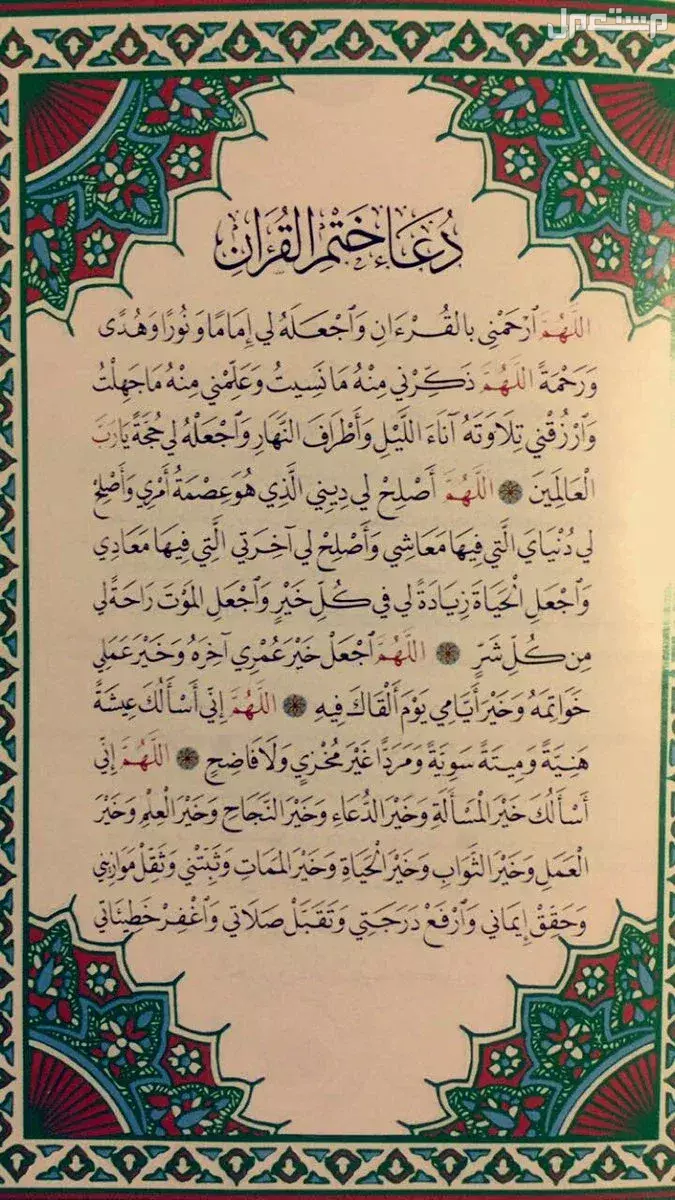 مستعمل
دُعَاءُ خَتْمِ القُرْآنِ
اللَّهُمَّ ٱرْحَمْنِي بالقُرْءَانِ وَٱجْعَلهُ لي إِمَامًا وَنُورًا وَهُدًى
وَرَحْمَةً اللَّهُمَّ ذَكِّرْني مِنْهُ مَا نَسِيتُ وَعَلِّمْني مِنْهُ مَا جَهِلْتُ
وَٱرْزُقْني تِلَاوَتَهُ آنَاءَ اللَّيْلِ وَأَطْرَافَ النَّهَارِ وَٱجْعَلْهُ لي حُجَّةً يَارَبَّ
العَالمِينَ اللَّهُمَّ أَصْلِحْ لي دِيني الَّذِي هُوَ عِصْمَةُ أَمْرِي وَأَصْلِحْ
لي دُنْيَايَ الَّتي فِيهَا مَعَاشِي وَأَصْلِحْ لي آخِرَتي الَّتي فِيهَا مَعَادِي
وَٱجْعَلِ الْحَيَاةَ زِيَادَةً لي في كُلِّ خَيْرٍ وَٱجْعَلِ المَوْتَ رَاحَةً لي
مِن كُلِّ شَرٍّ اللَّهُمَّ ٱجْعَلْ خَيْرَ عُمْرِي آخِرَهُ وَخَيْرَ عَمَلِي
خَوَاتِمَهُ وَخَيْرَ أَيَّامِي يَوْمَ أَلْقَاكَ فِيهِ اللَّهُمَّ إِنِّي أَسْأَلُكَ عِيشَةً
هَنِيَّةً وَمِيتَةً سَوِيَّةً وَمَرَدًّا غَيْرَ مُخْزِي وَلَا فَاضِحٍ اللَّهُمَّ إِنِّي
أَسْأَلُكَ خَيْرَ المَسْأَلَةِ وَخَيْرَ الدُّعَاءِ وَخَيْرَ النَّجَاحِ وَخَيْرَ الْعِلْمِ وَخَيْرَ
العَمَلِ وَخَيْرَ الثَّوَابِ وَخَيْرَ الْحَيَاةِ وَخَيْرَ المَمَاتِ وَثَبِّتْني وَثَقِّلْ مَوَازِيني
وَحَقِّقْ إِيمَاني وَٱرْفَعْ دَرَجَتِي وَتَقَبَّلْ صَلَاتي وَٱغْفِرْ خَطِيئَاتي